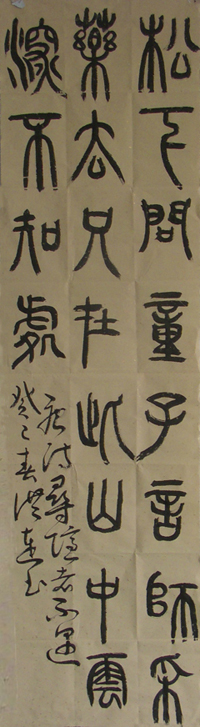 松下問童子言師采
藥去只在此山中雲
深不知處
唐詩尋隱者不遇
癸巳春洪連書